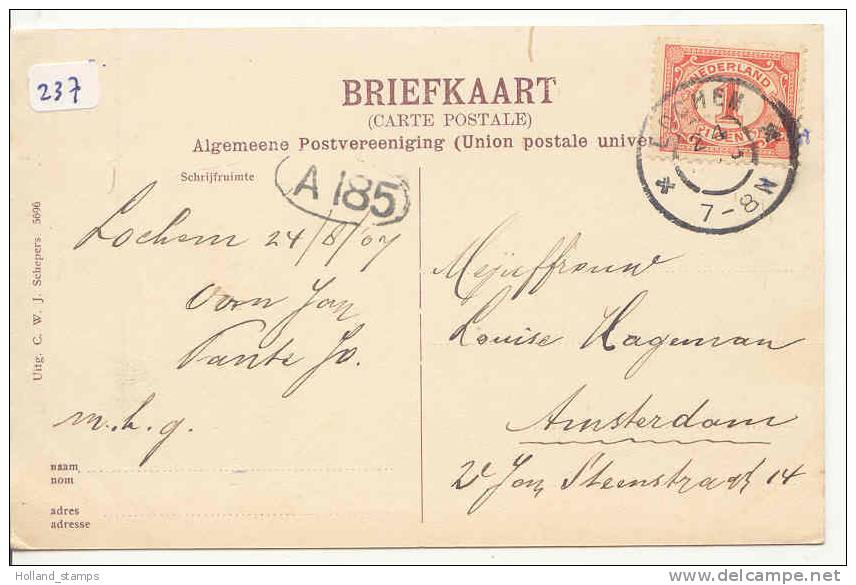 237
BRIEFKAART
(CARTE POSTALE)
Algemeene Postvereeniging (Union postale univer
NEDERLAND
1
LOCHEM
7-8 N
Schrijfruimte
A 185
Lochem 24/8/07
oom Jan
Tante Jo.
m.h.g.
naam
nom
adres
adresse
Uitg. C. W. J. Schepers 5696
Mejuffrouw
Louise Hageman
Amsterdam
2e Jan Steenstraat 14
Holland_stamps
delcampe.net